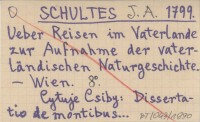 O SCHULTES J.A. 1799.
Ueber Reisen im Vaterlande
zur Aufnahme der vater-
ländischen Naturgeschichte.
– Wien. 8°.
Cytuje Csiby: Disserta-
tio de montibus...